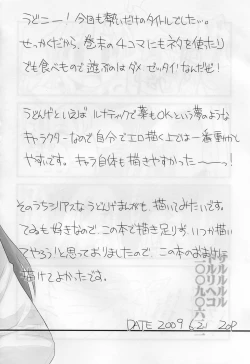 うどにー!今回も熱いだけのタイトルでしたぃ。
せっかくだから、巻末の4コマにもネタを使ったり
でも食べもので遊ぶのはダメ ゼッタイ!なんだぜ!
うどんげといえば ルナティックで薬もOKという夢のような
キャラクターなので自分でエロ描く上では一番動かし
やすいです。キャラ自体も描きやすかった〜〜っ!
そのうちシリアスなうどんげまんがも、描いてみたいです。
てゐも好きなので、この本で描き足り、いつか描い
てやろう!と思っておりましたので、この本のおまけに
描けてよかったです。
DATE 2009 6.21 20P